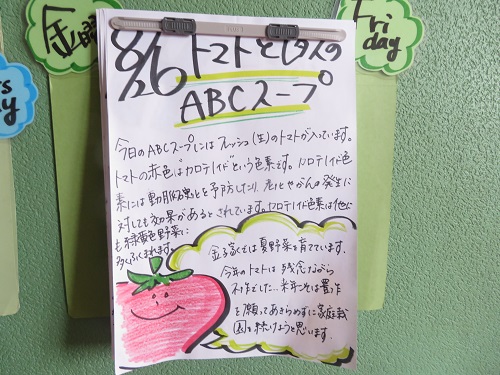 金曜
Fri
day
8/26 トマトとレタスの
ABCスープ
今日のABCスープにはフレッシュ(生)のトマトが入っています。
トマトの赤色は"カロテノイド"という色素です。カロテノイド色
素には動脈硬化を予防したり、老化やがんの発生に
対しても効果があるとされています。カロテノイド色素は他に
も緑黄色野菜に
多くふくまれます。
金子家では夏野菜を育てています。
今年のトマトは残念ながら
不作でした…来年こそは豊作
を願ってあきらめずに家庭菜
園を続けようと思います。